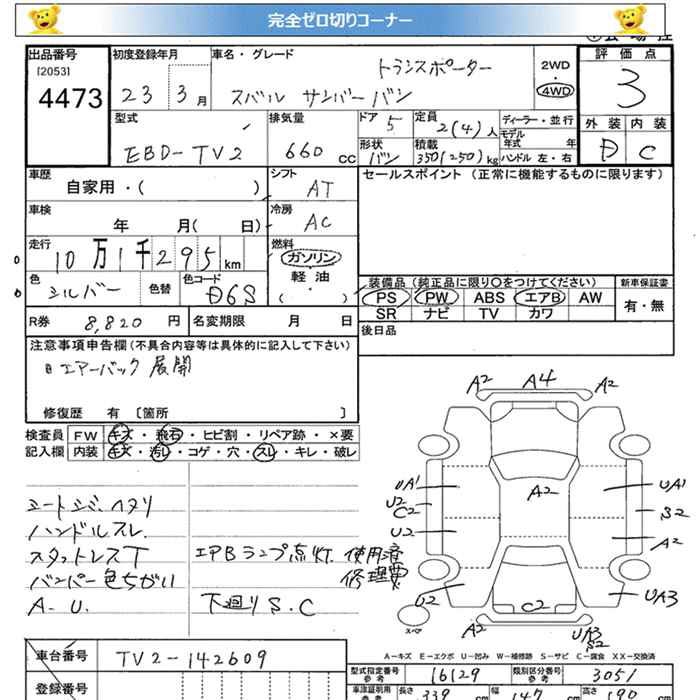 完全ゼロ切りコーナー
出品番号 初度登録年月 車名・グレード 評価点
[2053] トランスポーター 2WD
4473 23 3月 スバル サンバーバン 4WD 3
型式 排気量 ドア 5 定員 2(4)人 ディーラー・並行 外装 内装
モデル
EBD-TV2 660cc 形状 バン 積載 350(250)kg 年式 年 D C
ハンドル 左・右
車歴 シフト セールスポイント(正常に機能するものに限ります)
自家用・( ) AT
車検 冷房
年 月( 日) AC
走行 燃料
10万1千295km ガソリン
色 色替 色コード 軽油 装備品(純正品に限り○をつけてください) 新車保証書
シルバー D6S ( ・ ) PS PW ABS エアB AW 有・無
SR ナビ TV カワ
R券 8,820円 名変期限 月 日 後日品
注意事項申告欄(不具合内容等は具体的に記入して下さい)
エアーバック展開
修復歴 有 [箇所 ]
検査員 FW キズ・飛石・ヒビ割・リペア跡・×要
記入欄 内装 キズ・汚レ・コゲ・穴・スレ・キレ・破レ
A2 A4 A2
A2
UA1 UA1
U2
C2 S2
U2 A2
シートシミ、ヘタリ
ハンドルスレ
スタットレスT エアBランプ点灯 使用済
バンパー色ちがい 修理費
A.U. 下廻りS.C
U2 C2 UA3
スペア A2 UA3
S2
A-キズ E-エクボ U-凹み W-補修跡 S-サビ C-腐食 XX-交換済
車台番号 TV2-142609
型式指定番号 参考 16129 類別区分番号 参考 3051
登録番号
車検証明用 参考 長さ 339 cm 幅 147 cm 高さ 190 cm